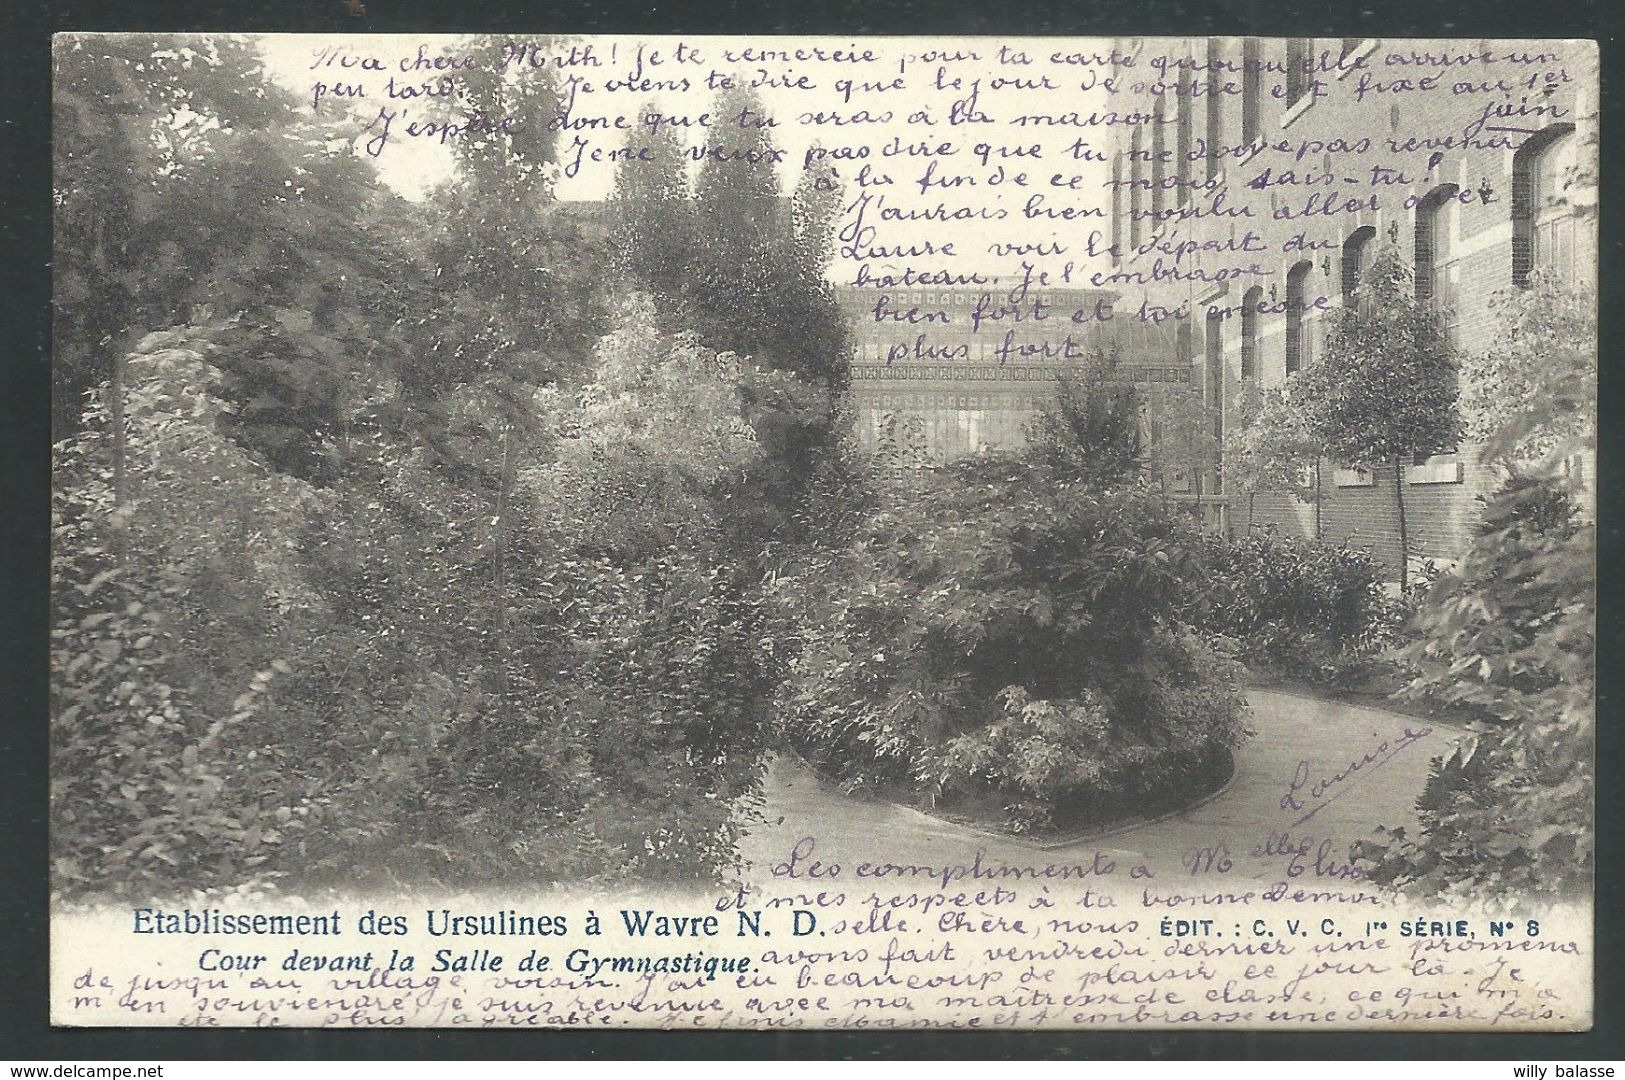 Ma chère Mith! Je te remercie pour ta carte quoiqu'elle arrive un
peu tard. Je viens te dire que le jour de sortie est fixé au 1er
juin
J'espère donc que tu seras à la maison.
Je ne veux pas dire que tu ne doive pas revenir
à la fin de ce mois, sais-tu!
J'aurais bien voulu aller avec
Laure voir le départ du
bâteau. Je l'embrasse
bien fort et toi encore
plus fort
Louise
Les compliments à Melle Elisa
et mes respects à ta bonne Demoi
selle. Chère, nous
Etablissement des Ursulines à Wavre N. D.
ÉDIT. : C. V. C. Ire SÉRIE, No 8
Cour devant la Salle de Gymnastique.
avons fait, vendredi dernier une promena
de jusqu'au village voisin. J'ai eu beaucoup de plaisir ce jour là. Je
m'en souviendré, je suis revenue avec ma maîtresse de classe, ce qui m'a
été le plus agréable. Je finis et t'embrasse une dernière fois.
willy balasse